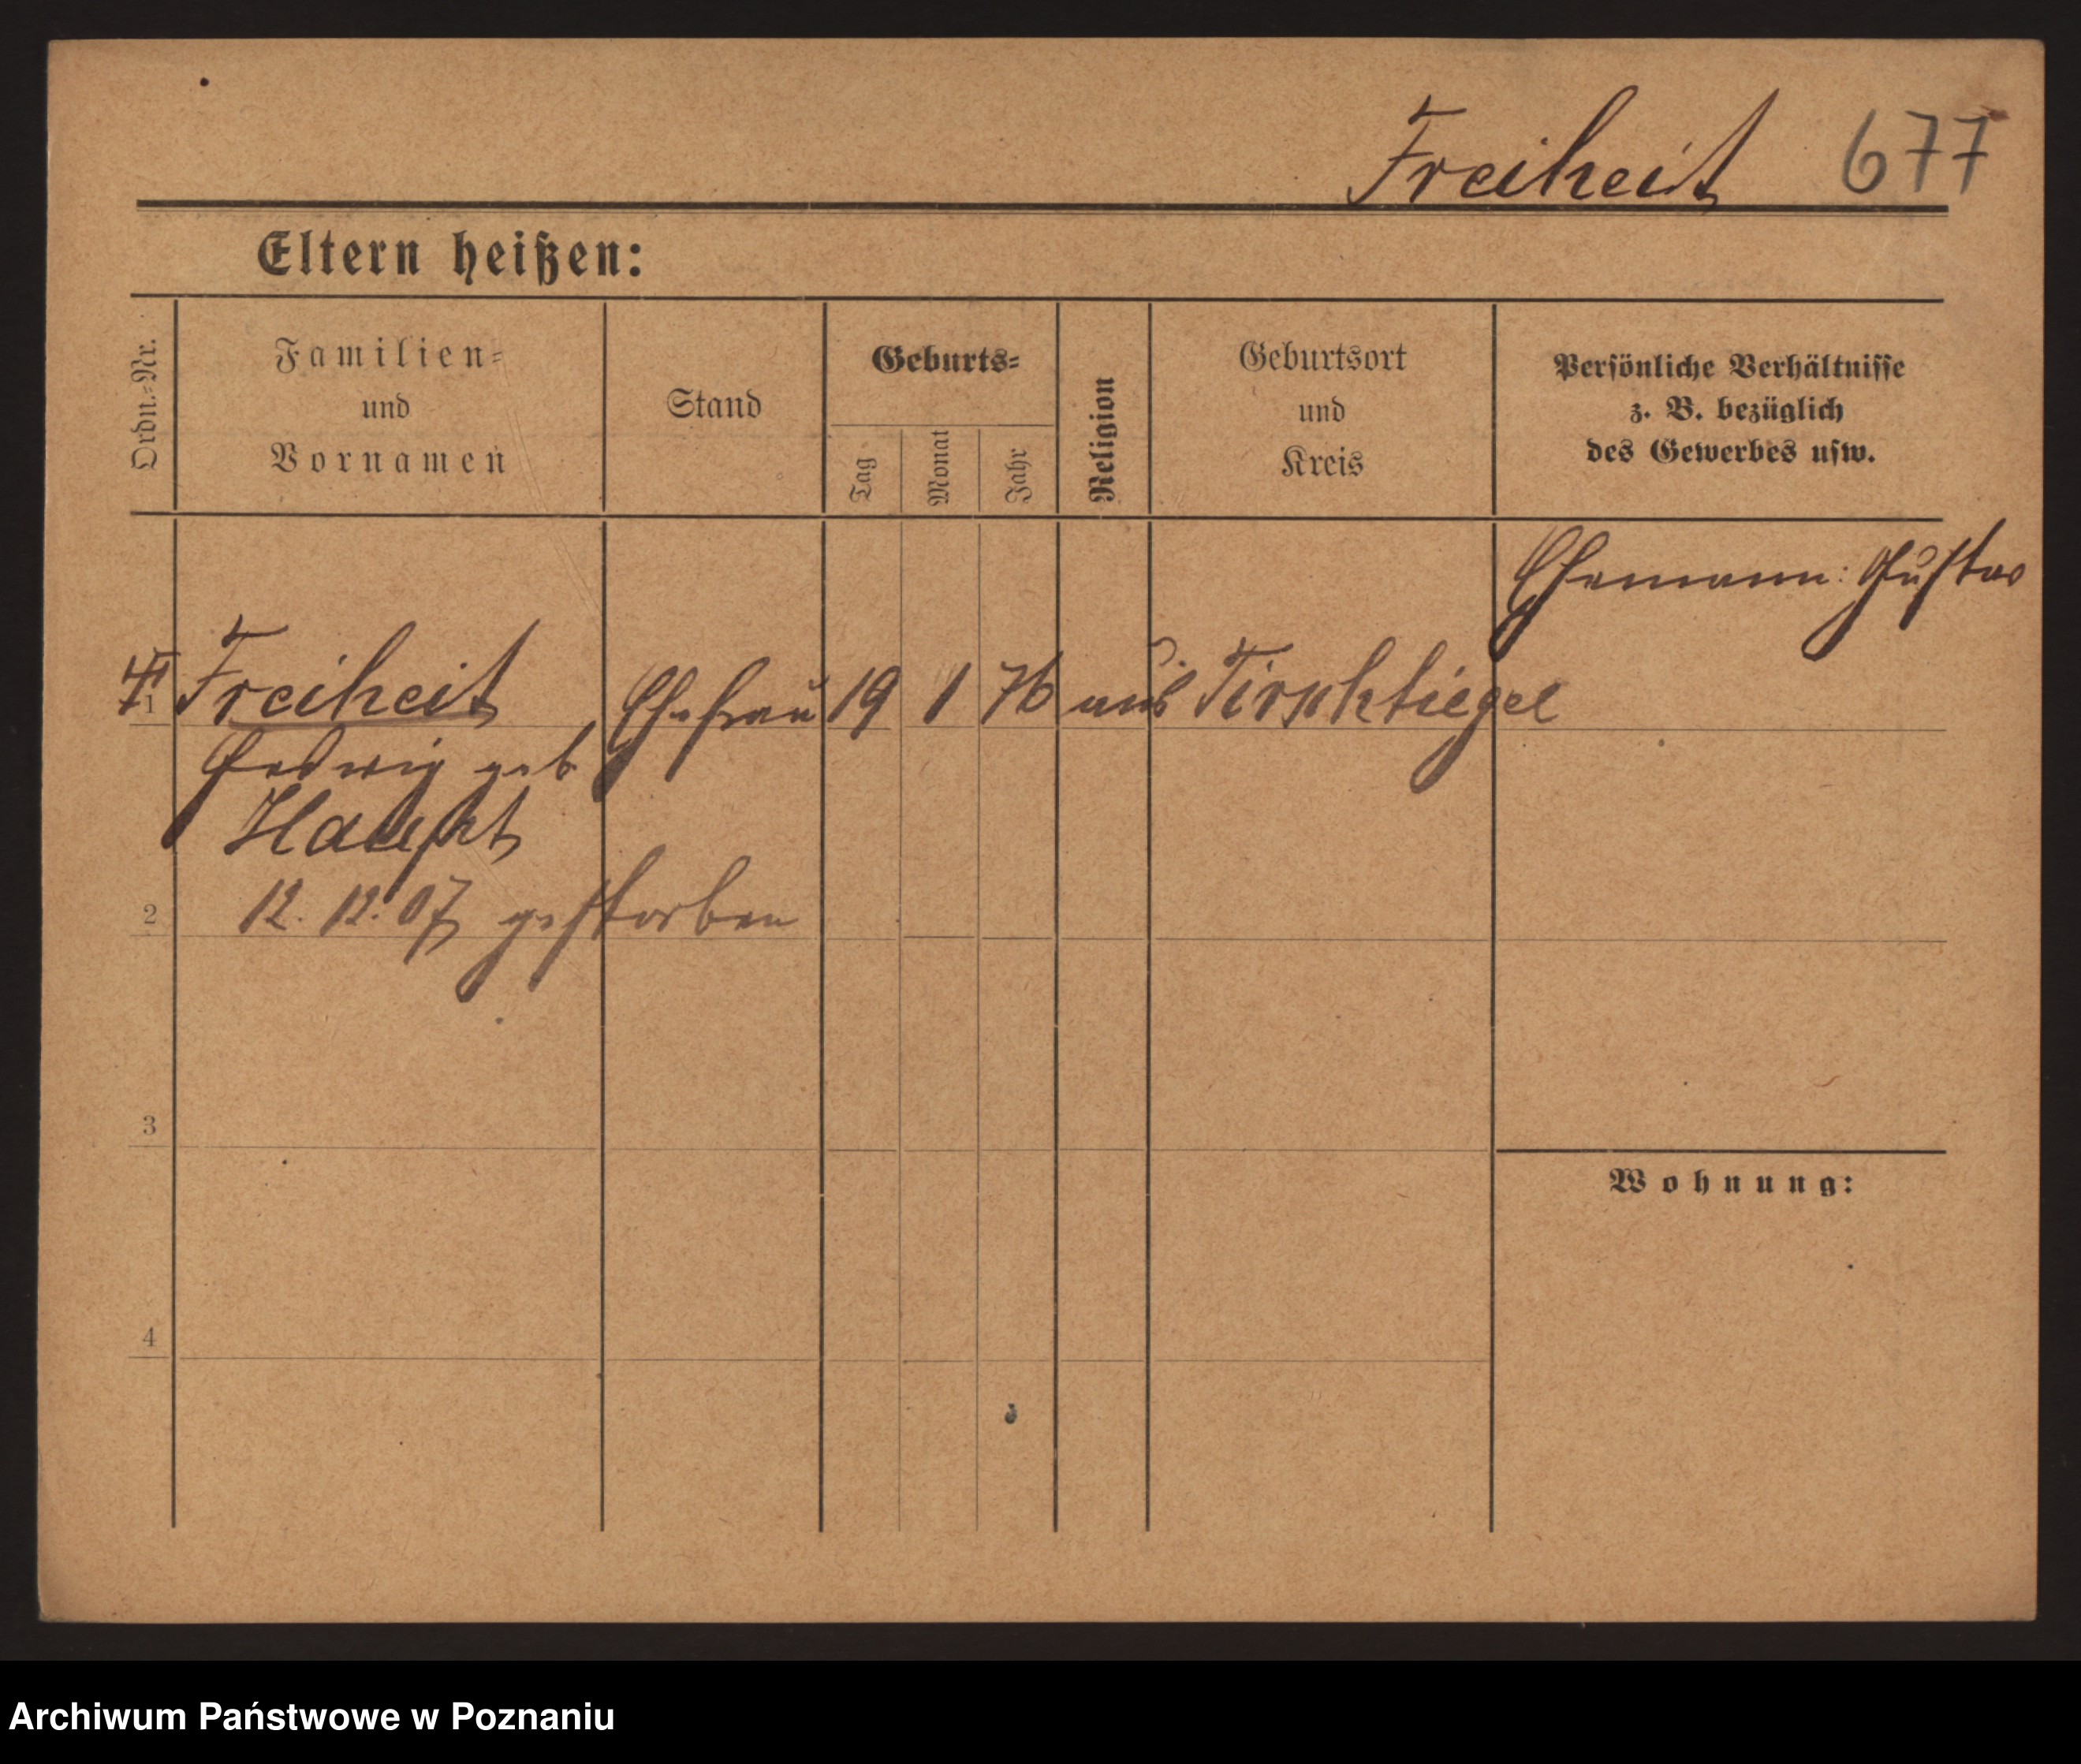 Freiheit 677
Eltern heißen:
Ordn.=Nr.
Familien=
und
Vornamen
Stand
Geburts=
Tag
Monat
Jahr
Religion
Geburtsort
und
Kreis
Persönliche Verhältnisse
z. B. bezüglich
des Gewerbes usw.
Ehemann: Gustav
1 Freiheit Ehefrau 19 1 76 aus Tirschtiegel
Hedwig geb
Haupt
2 12. 12. 07 gestorben
3
Wohnung:
4
Archiwum Państwowe w Poznaniu